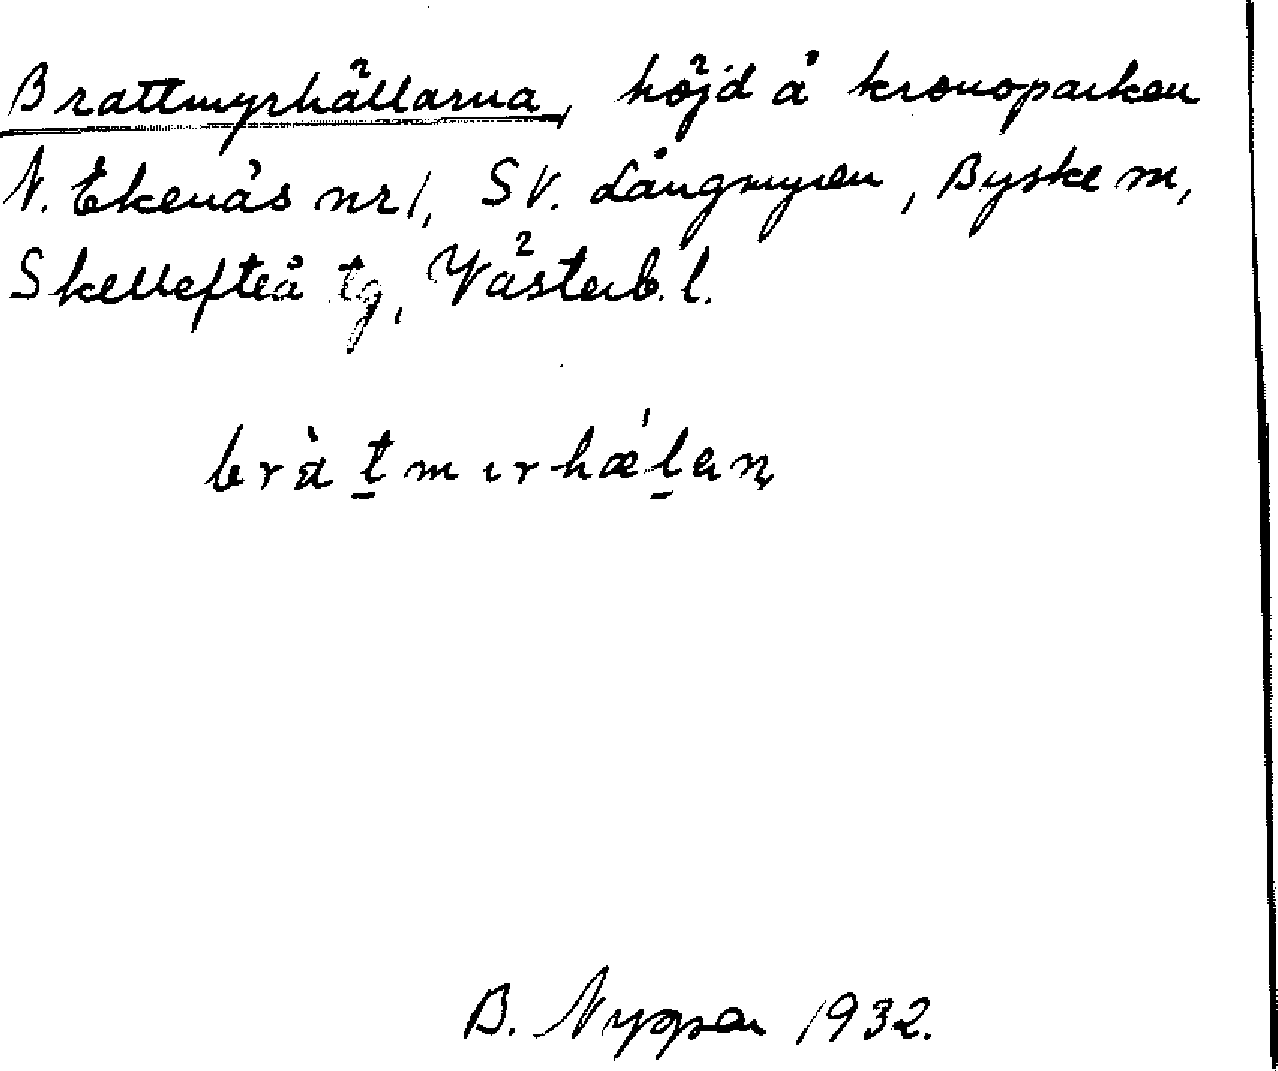 Brattmyrhällarna, höjd å kronoparken
N. Ekenäs nr 1, SV. Långmyren, Byske sn,
Skellefteå tg, Västerb. l.
B. 1932.